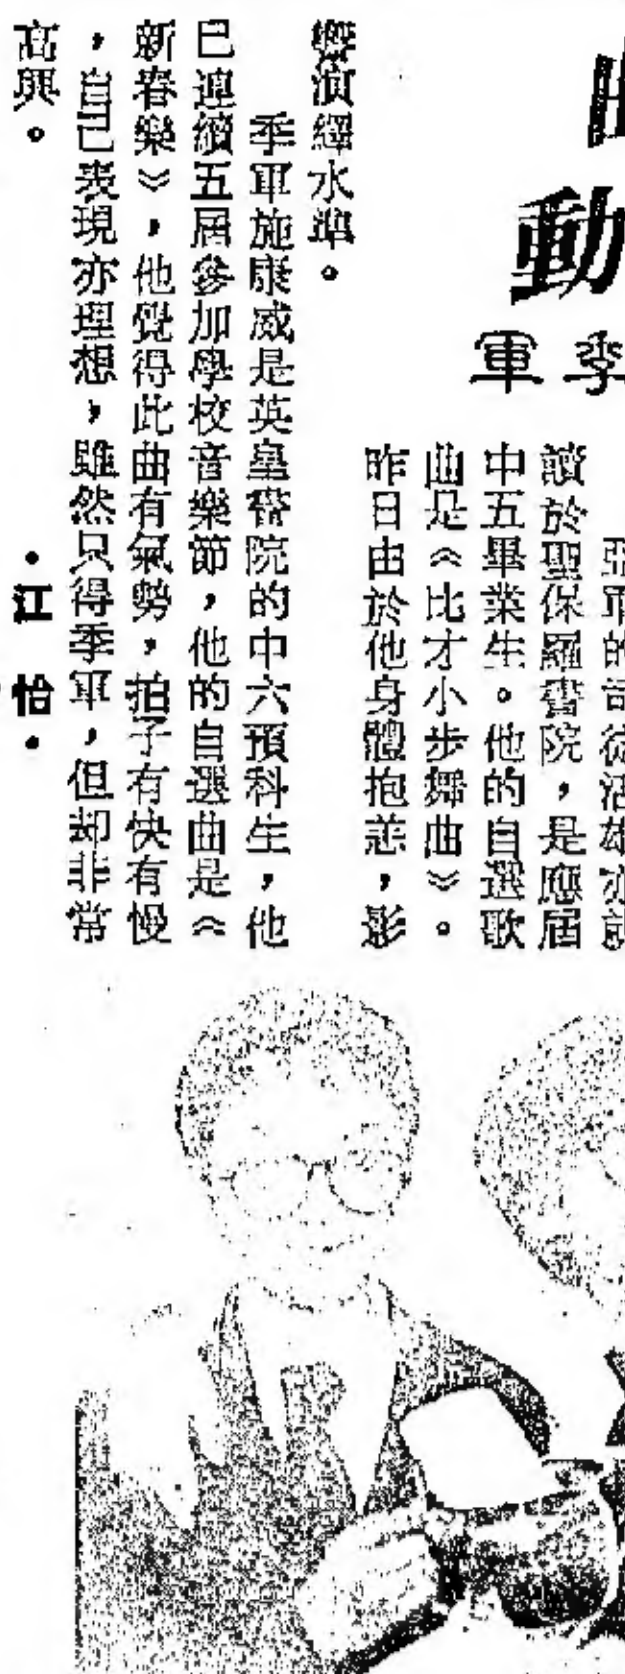 動
季軍
亞軍的司徒活雄亦就
讀於聖保羅書院，是應屆
中五畢業生。他的自選歌
曲是《比才小步舞曲》。
昨日由於他身體抱恙，影
響演繹水準。
季軍施康威是英皇書院的中六預科生，他
已連續五屆參加學校音樂節，他的自選曲是《
新春樂》，他覺得此曲有氣勢，拍子有快有慢
，自己表現亦理想，雖然只得季軍，但却非常
高興。
•江怡•